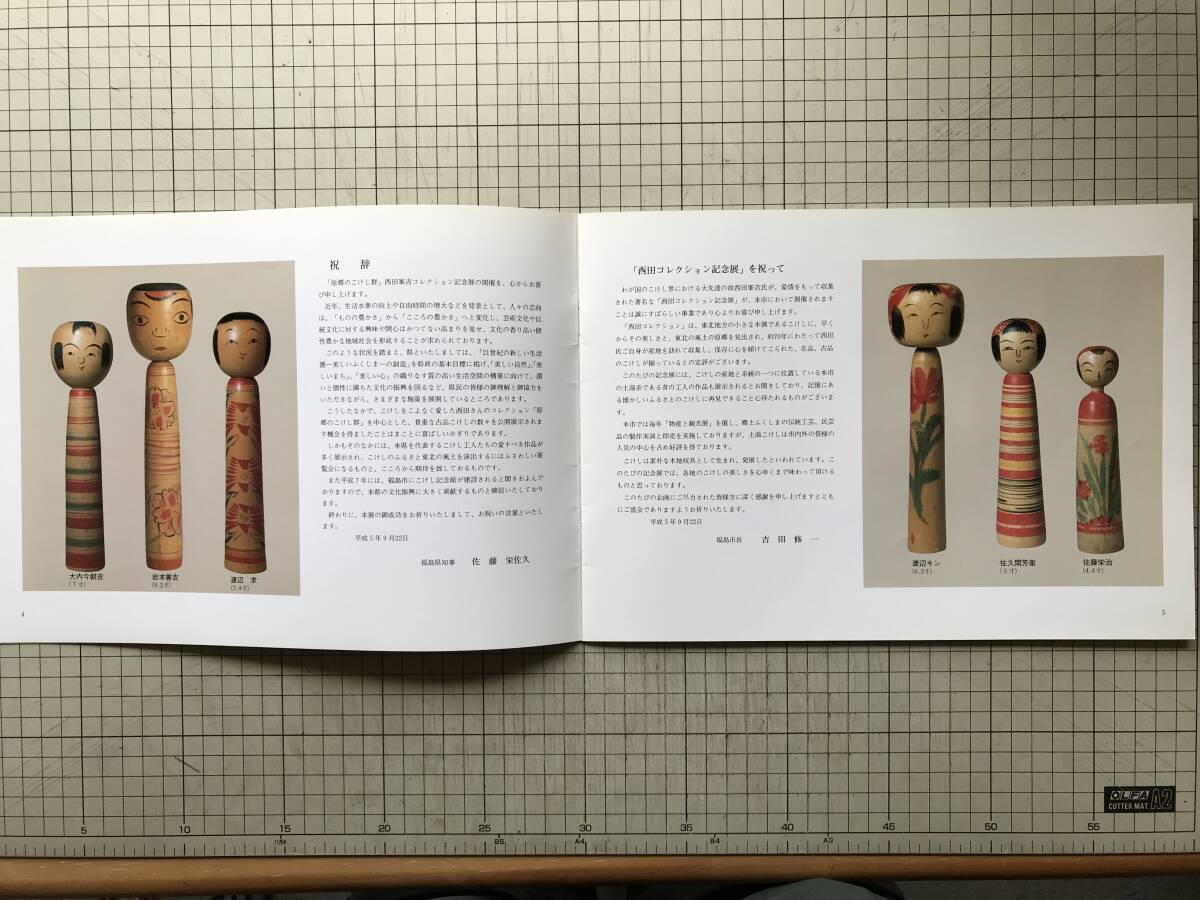 祝　辞
「原郷のこけし群」西田峯吉コレクション記念展の開催を、心からお喜
び申し上げます。
近年、生活水準の向上や自由時間の増大などを背景として、人々の志向
は、「ものの豊かさ」から「こころの豊かさ」へと変化し、芸術文化や伝
統文化に対する興味や関心はかつてない高まりを見せ、文化の香り高い個
性豊かな地域社会を形成することが求められております。
このような状況を踏まえ、県といたしましては、「21世紀の新しい生活
圏ー美しいふくしまーの創造」を県政の基本目標に掲げ、「美しい自然」、「美
しいまち」、「美しい心」の織りなす質の高い生活空間の構築に向けて、潤
いと個性に満ちた文化の振興を図るなど、県民の皆様の御理解と御協力を
いただきながら、さまざまな施策を展開しているところであります。
こうしたなかで、こけしをこよなく愛した西田さんのコレクション「原
郷のこけし群」を中心とした、貴重な古品こけしの数々を公開展示されま
す機会を得ましたことはまことに喜ばしいかぎりであります。
しかもそのなかには、本県を代表するこけし工人たちの愛すべき作品が
多く展示され、こけしのふるさと東北の風土を演出するにはふさわしい展
覧会になるものと、こころから期待を致しておるものです。
また平成7年には、福島市にこけし記念館が建設されると聞きおよんで
おりますので、本県の文化振興に大きく貢献するものと確信いたしており
ます。
終わりに、本展の御成功をお祈りいたしまして、お祝いの言葉といたし
ます。
平成5年9月22日
福島県知事　佐　藤　栄佐久
大内今朝吉
(7寸)
岩本善吉
(9.2寸)
渡辺　求
(7.4寸)
4
「西田コレクション記念展」を祝って
わが国のこけし界における大先達の故西田峯吉氏が、愛情をもって収集
された著名な「西田コレクション記念展」が、本市において開催されます
ことは誠にすばらしい事業であり心よりお喜び申し上げます。
「西田コレクション」は、東北地方の小さな木偶であるこけしに、早く
からその美しさと、東北の風土の原郷を発見され、約70年にわたって西田
氏ご自身が産地を訪れて収集し、保存に心を傾けてこられた、名品、古品
のこけしが揃っているとの定評がございます。
このたびの記念展には、こけしの産地と系統の一つに位置している本市
の土湯系である昔の工人の作品も展示されるとお聞きしており、記憶にあ
る懐かしいふるさとのこけしに再見できること心待たれるものがございま
す。
本市では毎年「物産と観光展」を催し、郷土ふくしまの伝統工芸、民芸
品の製作実演と即売を実施しておりますが、土湯こけしは市内外の皆様の
人気の中心を占め好評を得ております。
こけしは素朴な木地玩具として生まれ、発展したといわれています。こ
のたびの記念展では、各地のこけしの美しさを心ゆくまで味わって頂ける
ものと思っております。
このたびの企画にご尽力された皆様方に深く感謝を申し上げますととも
にご盛会でありますようお祈りいたします。
平成5年9月22日
福島市長　吉　田　修　一
渡辺キン
(6.2寸)
佐久間芳衛
(5寸)
佐藤栄治
(4.4寸)
5
OLFA
CUTTER MAT A2
5 10 15 20 25 30 35 40 45 50 55
B5 A4 B4 A3